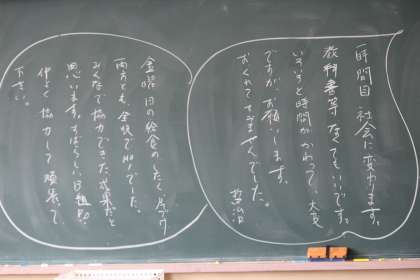 一時間目 社会に変わります。
教科書等なくてもいいです。
いろいろと時間がかわって、大変
ですが、お願いします。
おくれてすみませんでした。
哲治
金曜日の給食のしたく、片づけ
両方とも、全校でNo.1でした。
みんなで協力できた成果だと
思います。すばらしい
仲よく協力して頑張って
下さい。